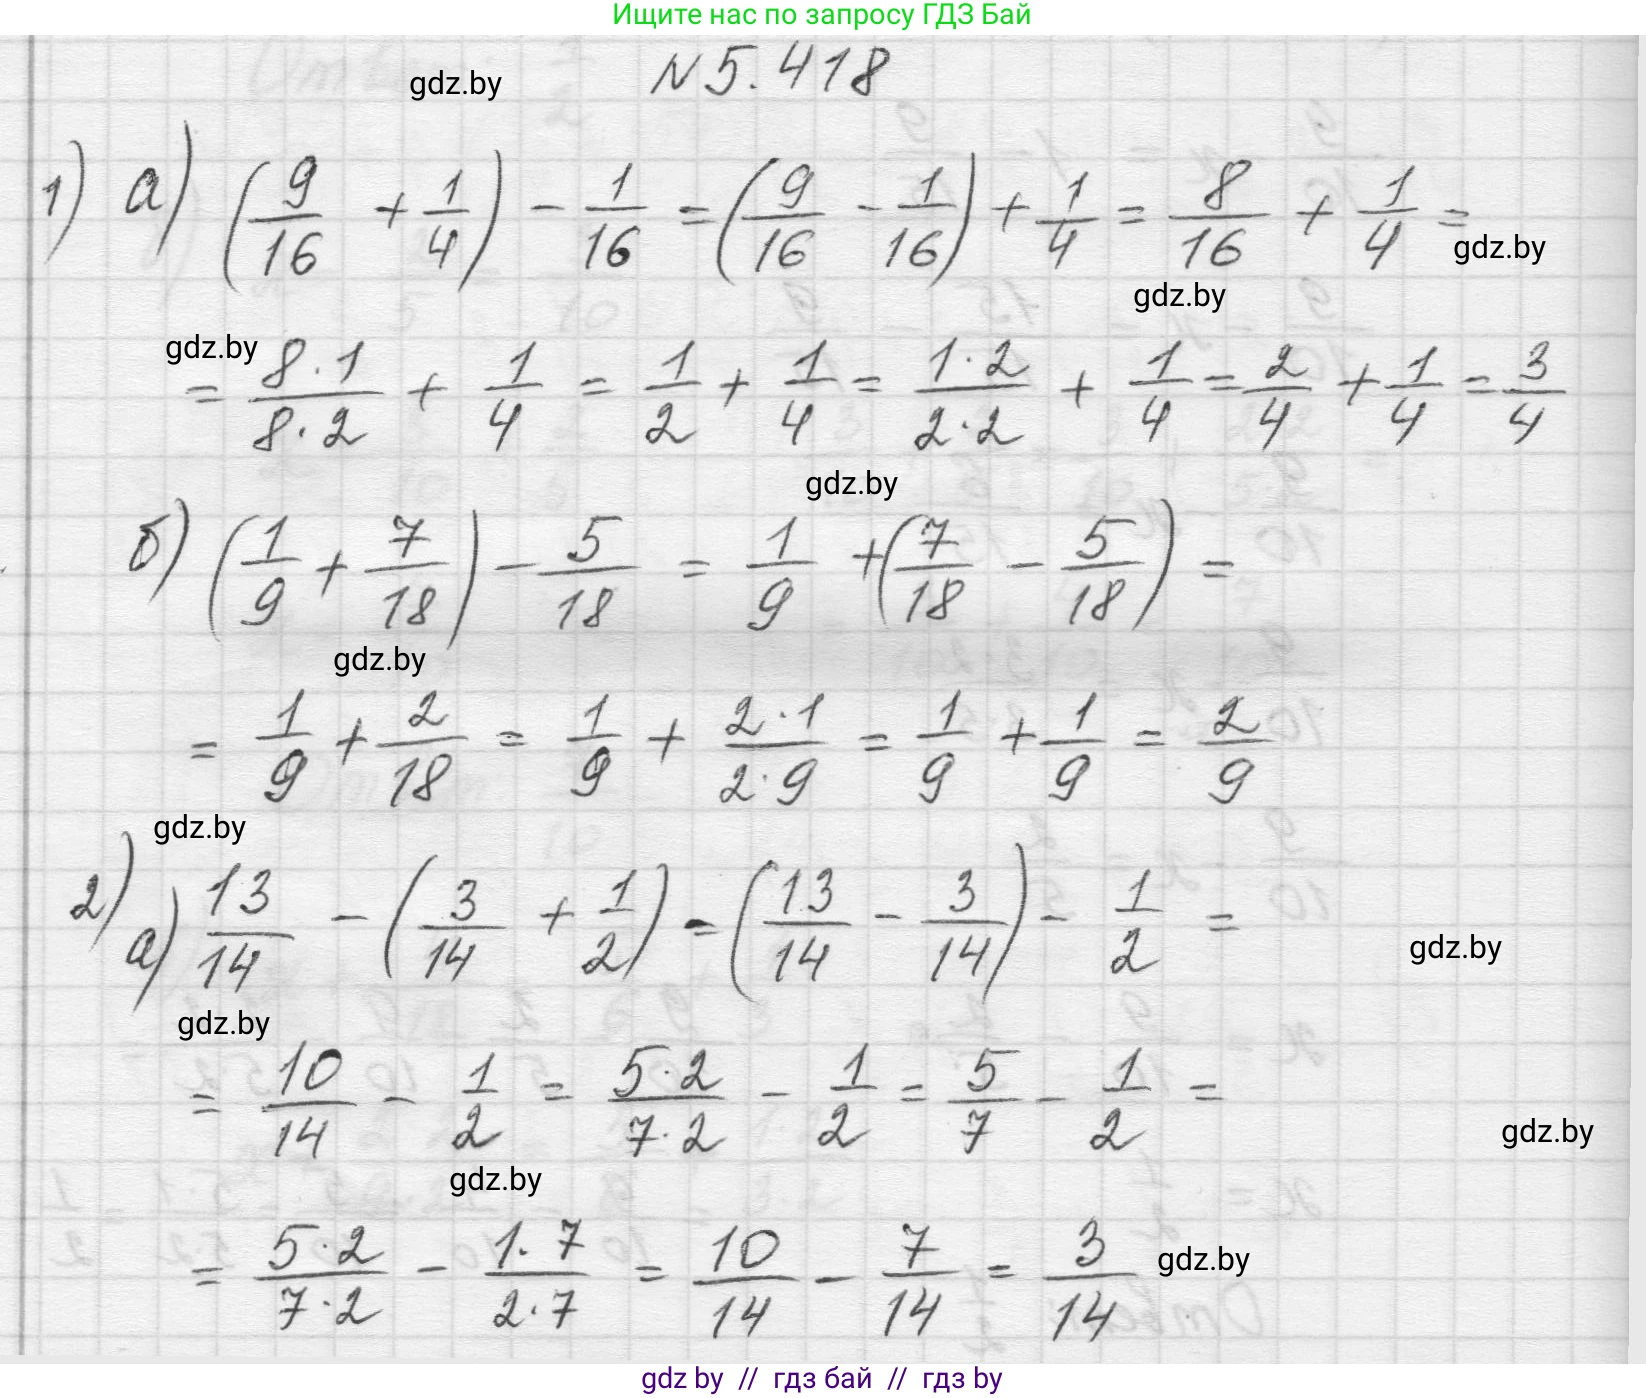 Ищите нас по запросу ГДЗ Бай
N 5.418
gdz.by
1) а) (9/16 + 1/4) - 1/16 = (9/16 - 1/16) + 1/4 = 8/16 + 1/4 =
gdz.by
gdz.by
gdz.by
= 8·1/8·2 + 1/4 = 1/2 + 1/4 = 1·2/2·2 + 1/4 = 2/4 + 1/4 = 3/4
gdz.by
б) (1/9 + 7/18) - 5/18 = 1/9 + (7/18 - 5/18) =
gdz.by
= 1/9 + 2/18 = 1/9 + 2·1/2·9 = 1/9 + 1/9 = 2/9
gdz.by
2) а) 13/14 - (3/14 + 1/2) = (13/14 - 3/14) - 1/2 =
gdz.by
gdz.by
= 10/14 - 1/2 = 5·2/7·2 - 1/2 = 5/7 - 1/2 =
gdz.by
gdz.by
= 5·2/7·2 - 1·7/2·7 = 10/14 - 7/14 = 3/14
gdz.by
gdz by // гдз бай // гдз by